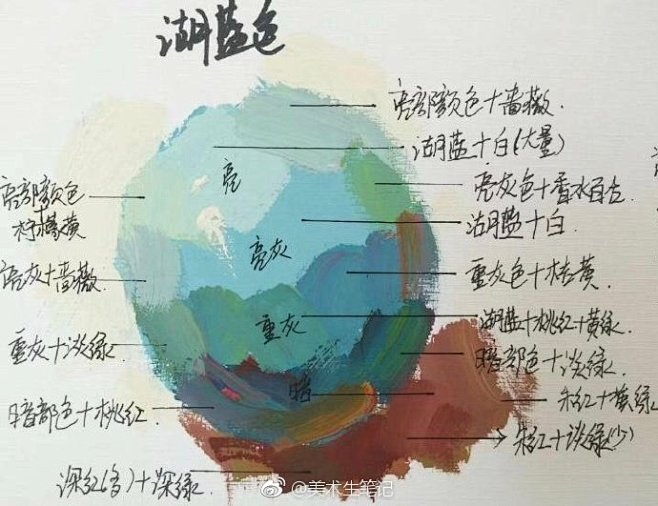 湖蓝色
亮部颜色+蔷薇.
湖蓝+白(大量)
亮
亮灰色+香水百合.
亮部颜色
柠檬黄
湖蓝+白.
亮灰
亮灰+蔷薇.
重灰色+桔黄.
重灰
湖蓝+桃红+黄绿.
重灰+淡绿.
暗部色+淡绿.
暗
朱红+黄绿
暗部色+桃红.
朱红+淡绿(少)
深红(多)+深绿.
@美术生笔记